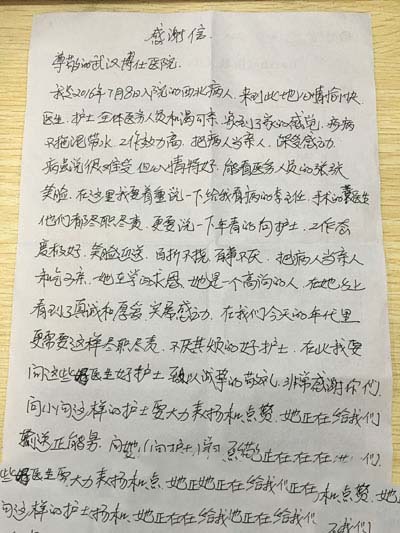 感谢信
尊敬的武汉博仕医院
我是2016年7月8日入院的西北病人，来到此地心情愉快
医生，护士全体医务人员和蔼可亲，家到了家的感觉，看病
不拖泥带水，工作效力高，把病人当亲人，深受感动
病虽说很难受，但心情特好，能看医务人员的张张
笑脸，在这里我要着重说一下给我看病的李主任，手术的医生
他们有尽职尽责，更要说一下年青的向护士，工作态
度极好，笑脸迎送，百折不挠，百事不厌，把病人当亲人
她是一个高尚的人，在她身上
看到了真诚和厚爱，实属感动，在我们今天的年代里
要需要这样尽职尽责，不厌其烦的好护士，在此我要
向这些好医生好护士致以诚挚的敬礼，非常感谢你们
向小向这样的护士要大力表扬和点赞，她正在给我们
送正能量，向她（小向护士）点
些好医生要大力表扬和点
向这样的护士扬和，她正在在给我